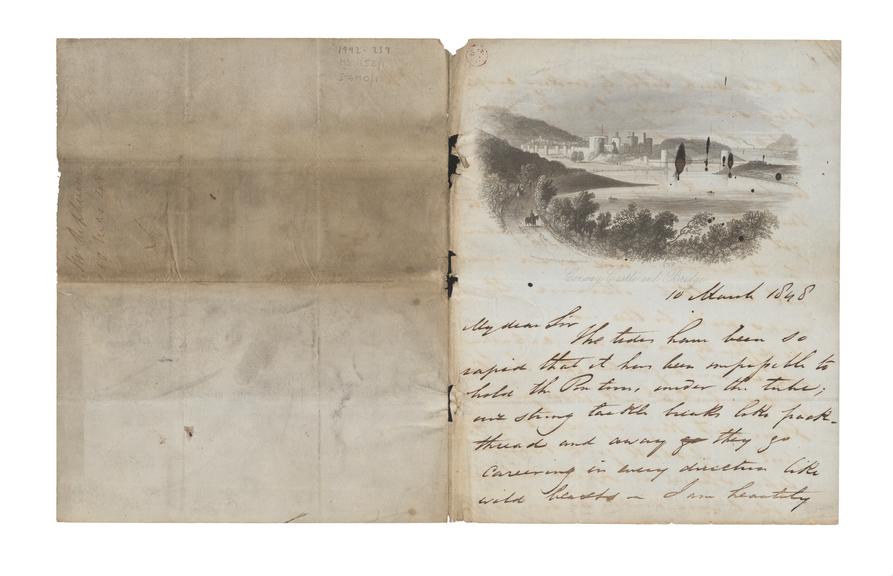 1992-239
MS 1152/1
Conway Castle and Bridge
10 March 1848
My dear Sir
The tides have been so
rapid that it has been impossible to
hold the Pontoons under the tube;
our strong tackle breaks like pack-
thread and away they go
careering in every direction like
wild beasts — I am heartily